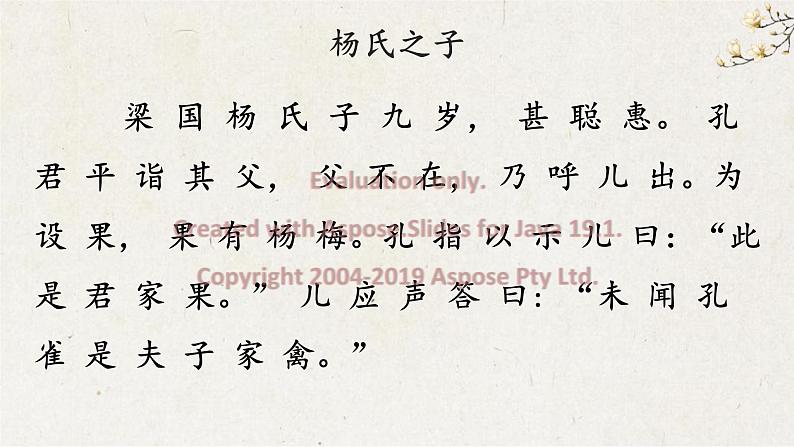 杨氏之子
梁国杨氏子九岁，甚聪惠。孔
君平诣其父，父不在，乃呼儿出。为
Evaluation only.
设果，果有杨梅。孔指以示儿曰：“此
Created with Aspose.Slides for Java 19.1.
是君家果。”儿应声答曰：“未闻孔
Copyright 2004-2019 Aspose Pty Ltd.
雀是夫子家禽。”